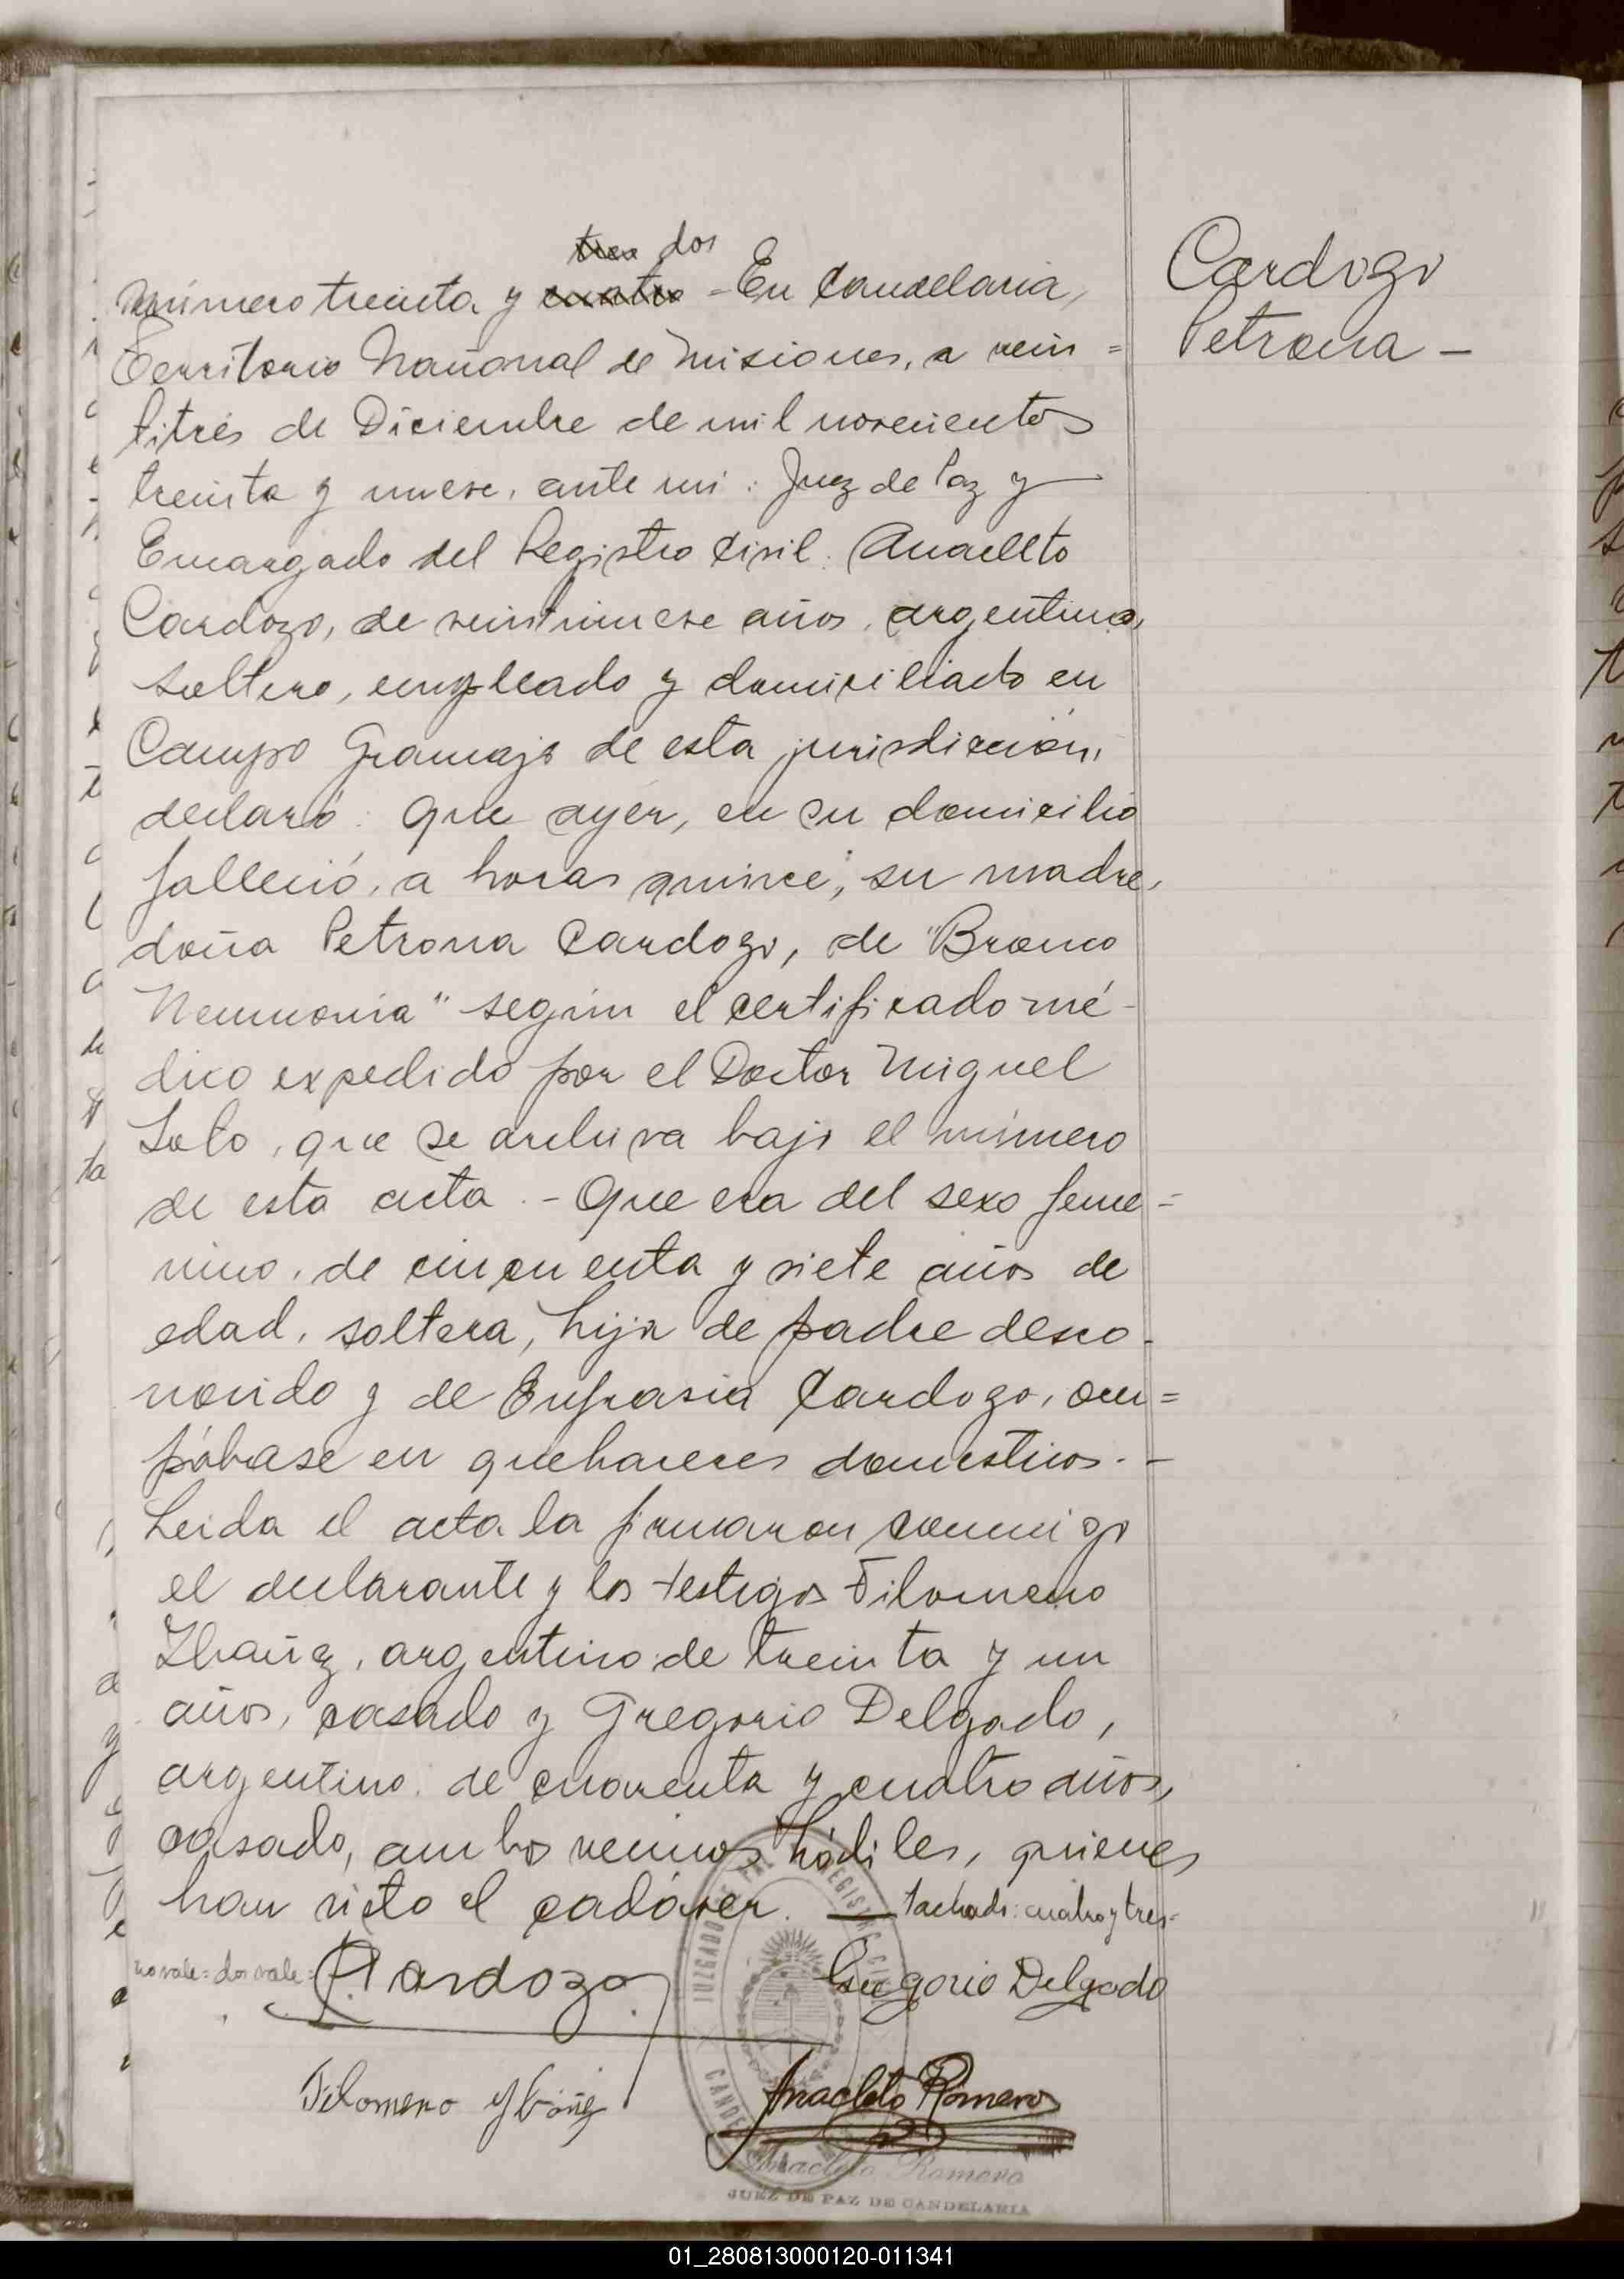 Cardozo
Petrona -
tres dos
Número treinta y cuatro - En Candelaria,
Territorio Nacional de Misiones, a vein =
titrés de Diciembre de mil novecientos
treinta y nueve, ante mi: Juez de Paz y
Encargado del Registro Civil: Anacleto
Cardozo, de veintinueve años, argentino,
soltero, empleado y domiciliado en
Campo Gramajo de esta jurisdicción,
declaró: Que ayer, en su domicilio
falleció, a horas quince, su madre,
doña Petrona Cardozo, de "Bronco
Neumonia" según el certificado mé-
dico expedido por el Doctor Miguel
Soto, que se archiva bajo el número
de esta acta. - Que era del sexo feme =
nino, de cincuenta y siete años de
edad, soltera, hija de padre desco-
nocido y de Eufrasia Cardozo, ocu =
pábase en quehaceres domesticos. -
Leida el acta la firmaron conmigo
el declarante y los testigos Filomeno
Ibañez, argentino de treinta y un
años, casado y Gregorio Delgado,
argentino de cuarenta y cuatro años,
casado, ambos vecinos hábiles, quienes
han visto el cadáver. — tachado: cuatro y tres-
no vale = dos vale =
A Cardozo
Gregorio Delgado
Filomeno Ybañez
Anacleto Romero
JUZGADO DE PAZ REGISTRO CIVIL
Anacleto Romero
JUEZ DE PAZ DE CANDELARIA
01_280813000120-011341